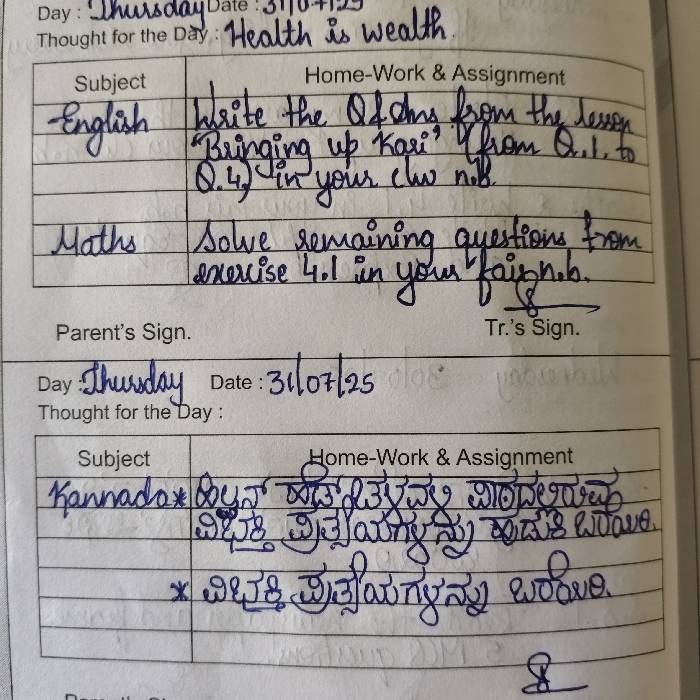 Day : Thursday Date : 31/07/25
Thought for the Day : Health is wealth.
Subject Home-Work & Assignment
English Write the Q & Ans from the lesson
"Bringing up Kari" (from Q.1. to
Q.4) in your c/w n.b.
Maths Solve remaining questions from
exercise 4.1 in your fair n.b.
Parent's Sign. Tr.'s Sign.
Day : Thursday Date : 31/07/25
Thought for the Day :
Subject Home-Work & Assignment
Kannada *
ವಿಭಕ್ತಿ ಪ್ರತ್ಯಯಗಳನ್ನು ಹುಡುಕಿ ಬರೆಯಿರಿ.
* ವಿಭಕ್ತಿ ಪ್ರತ್ಯಯಗಳನ್ನು ಬರೆಯಿರಿ.